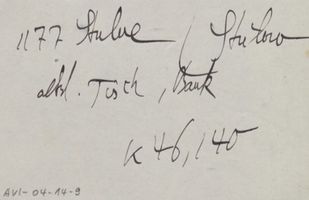 1177 Stulve / Stulow
abd. Tisch, Bank
K 46, 140
AVI-04-14-9